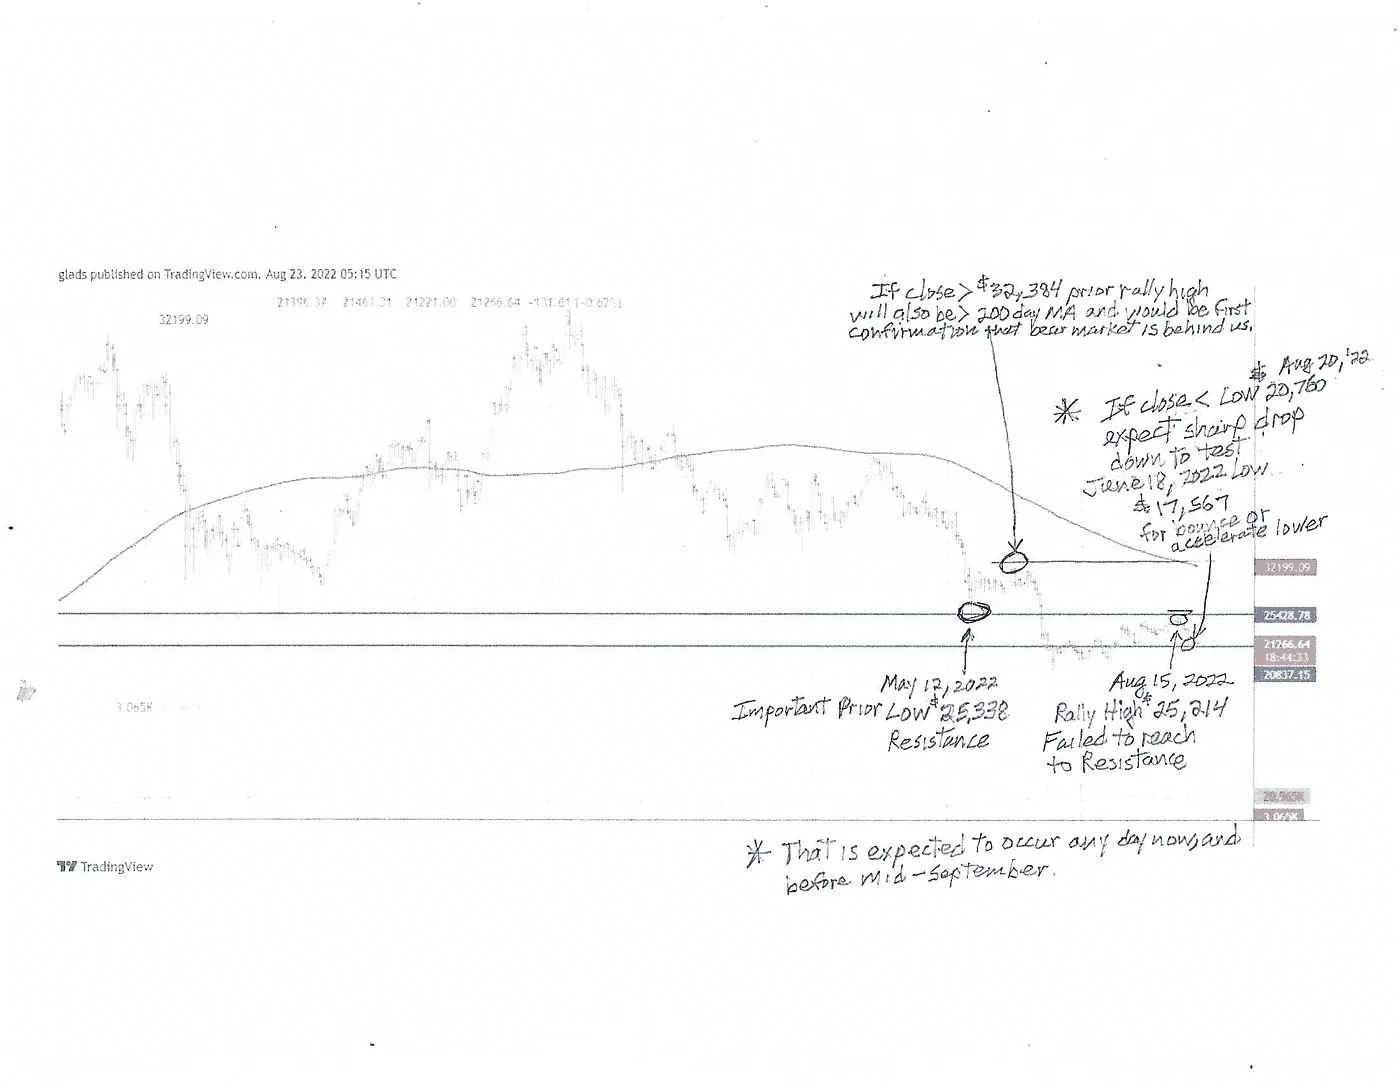 glads published on TradingView.com, Aug 23, 2022 05:15 UTC
21396.37 21463.31 21221.00 21266.64 -131.61 (-0.62%)
32199.09
If close > $32,384 prior rally high
will also be > 200 day MA and would be first
confirmation that bear market is behind us.
$ Aug 20, '22
* If close < Low 20,760
expect sharp drop
down to test
June 18, 2022 Low
$17,567
for bounce or
accelerate lower
32199.09
25428.78
21266.64
18:44:33
20837.15
May 12, 2022
Important Prior Low $25,338
Resistance
Aug 15, 2022
Rally High $25,214
Failed to reach
to Resistance
3.065K
20.965K
3.065K
* That is expected to occur any day now, and
before Mid-September.
TradingView